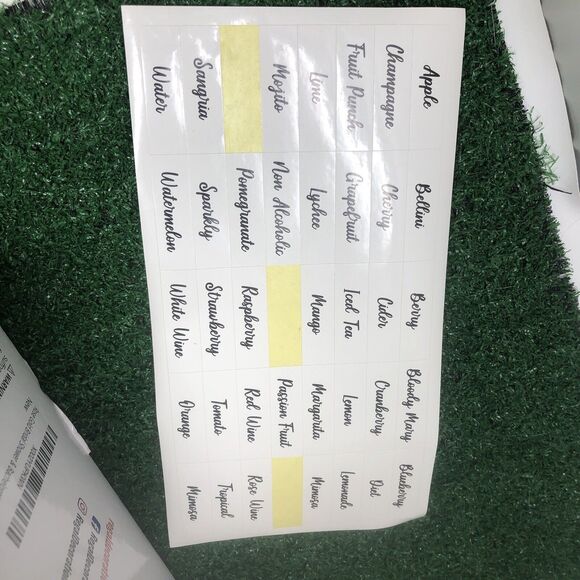 Apple Bellini Berry Bloody Mary Blueberry
Champagne Cherry Cider Cranberry Diet
Fruit Punch Grapefruit Iced Tea Lemon Lemonade
Lime Lychee Mango Margarita Mimosa
Mojito Non Alcoholic Passion Fruit
Pomegranate Raspberry Red Wine Rose Wine
Sangria Sparkly Strawberry Tomato Tropical
Water Watermelon White Wine Orange Mimosa
New